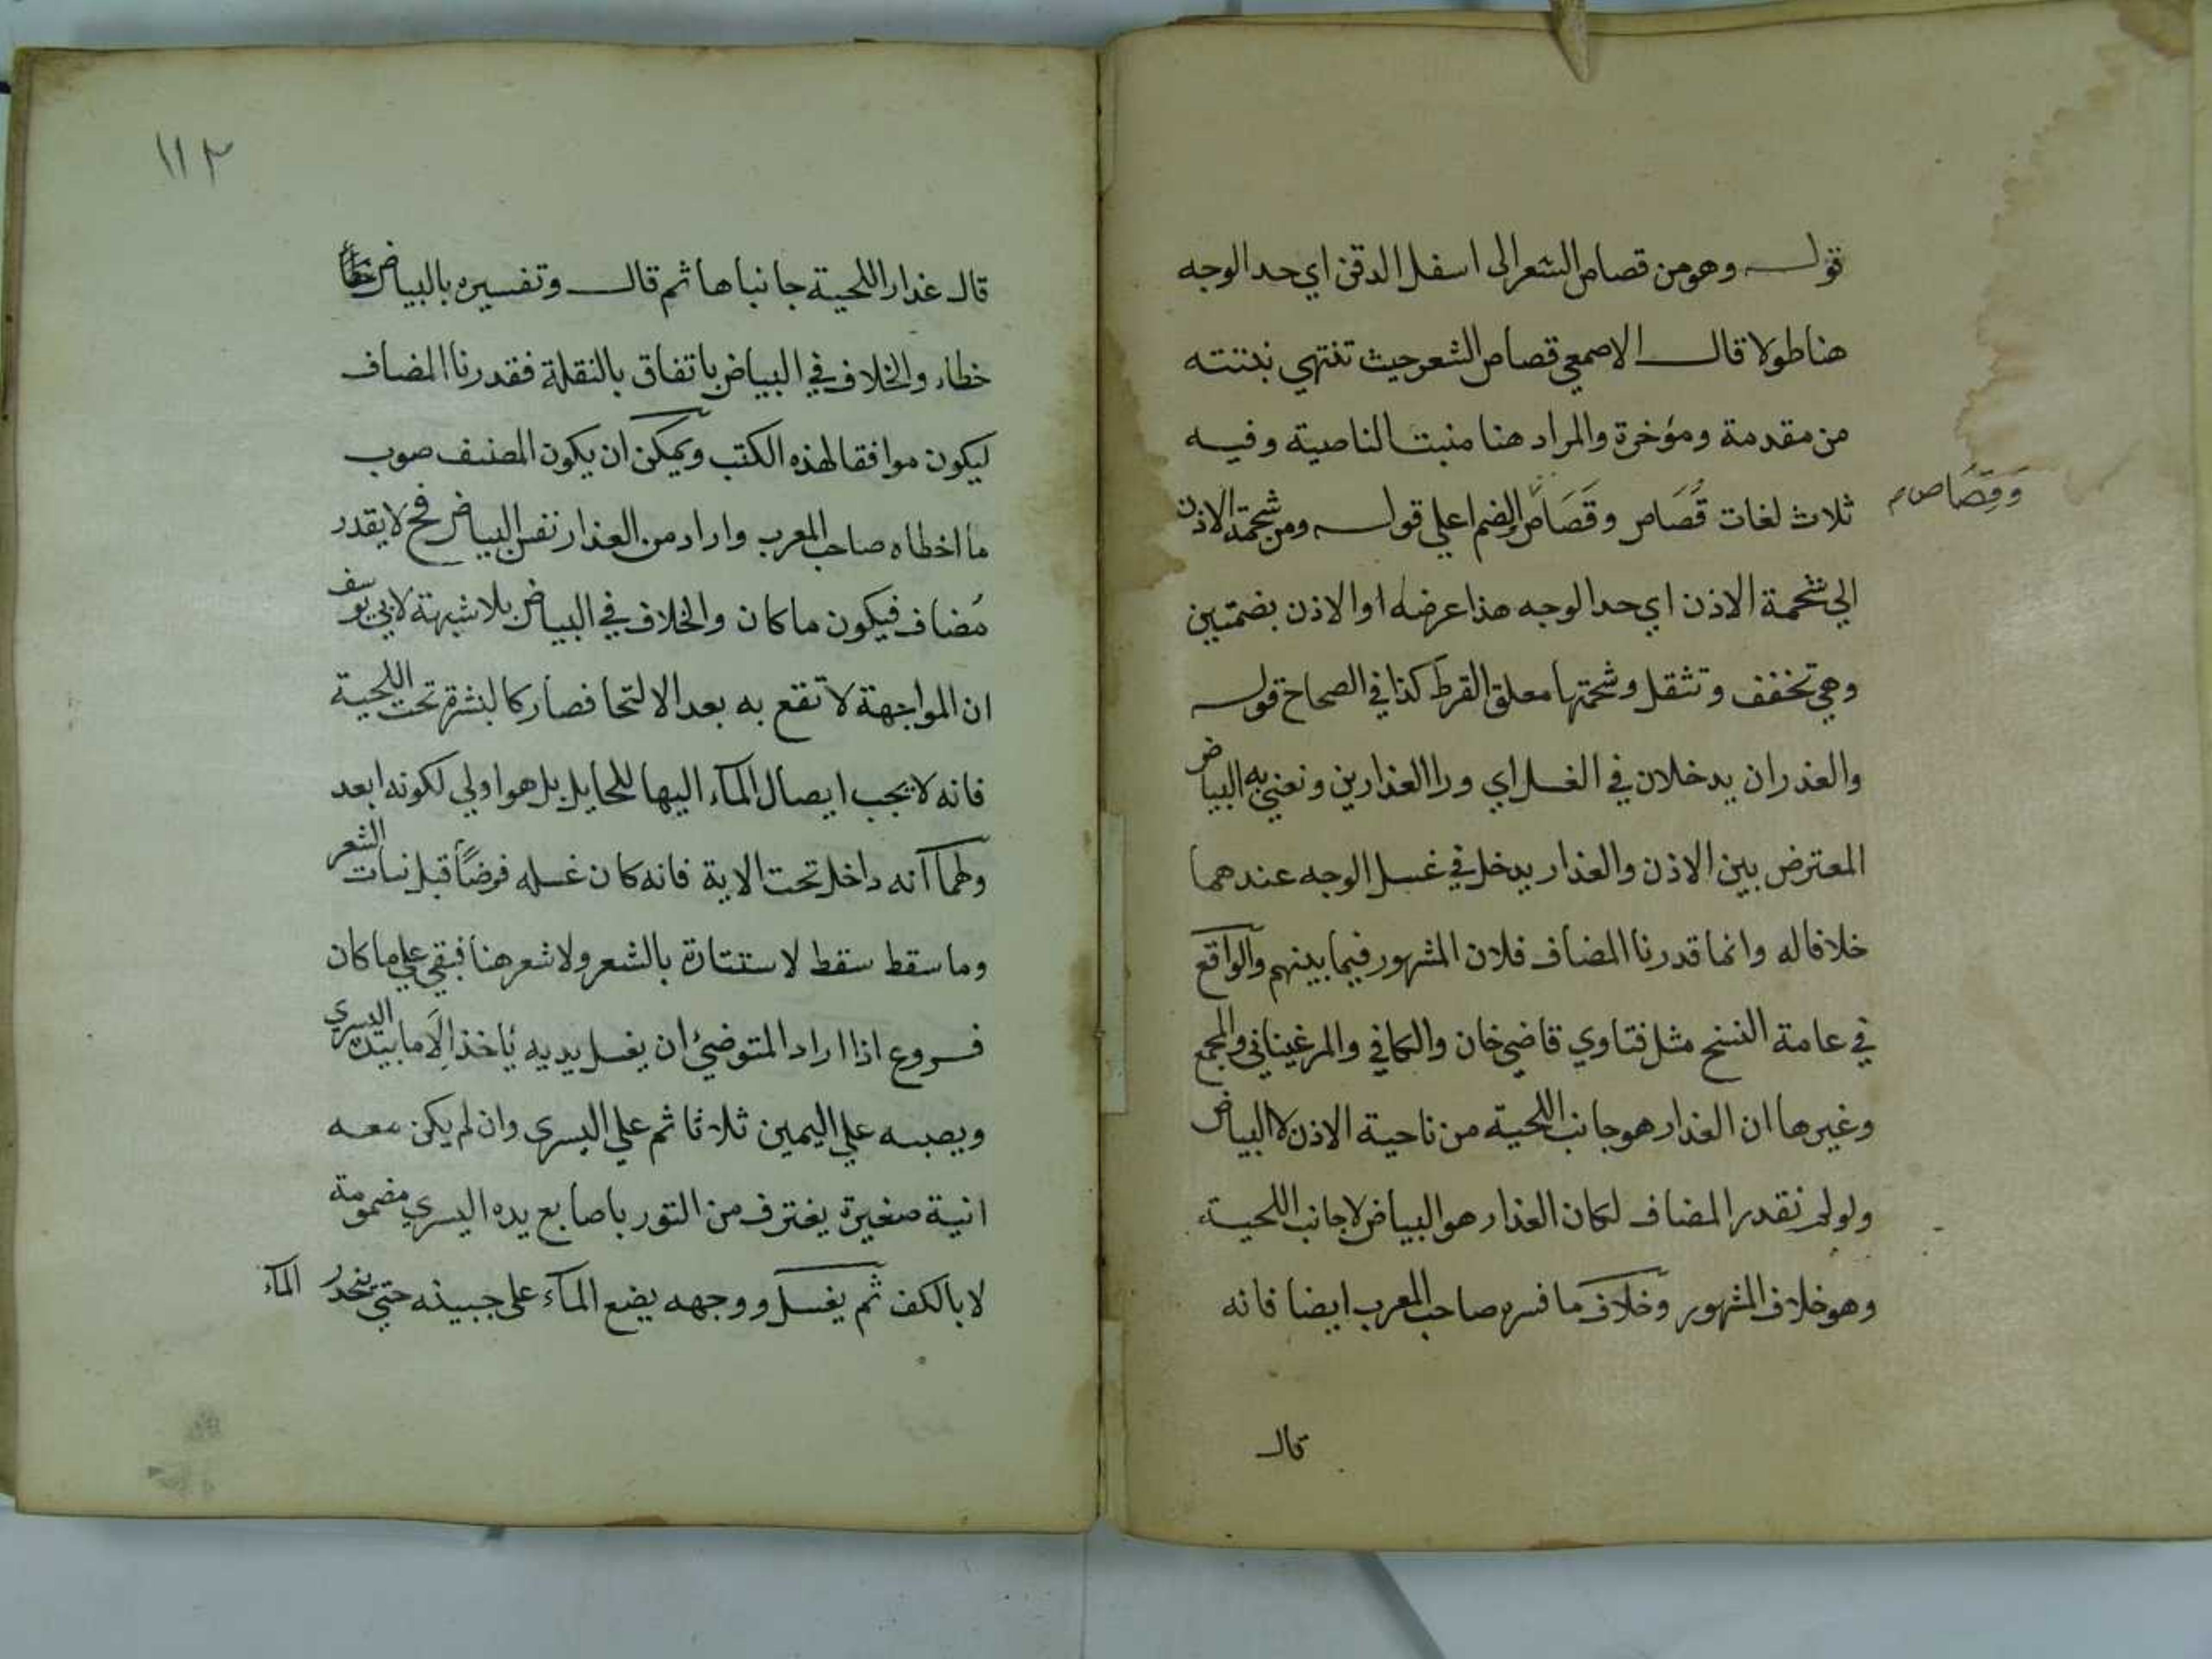 قولـه وهو من قصاص الشعر الى اسفل الدقن اي حد الوجه
هنا طولا قال الاصمعي قصاص الشعر حيث تنتهي نبتته
من مقدمة ومؤخرة والمراد هنا منبت الناصية وفيه
ثلاث لغات قُصَاص وقَصَاص والضم اعلي قوله ومن شحمة الاذن
وَقِصَاص م
الي شحمة الاذن اي حد الوجه هذا عرضه او الاذن بضمتين
وهي تخفف وتثقل وشحمتها معلق القرط كذا في الصحاح قوله
والعذران يدخلان في الغسل اي ورا العذارين ونعني به البياض
المعترض بين الاذن والعذار يدخل في غسل الوجه عندهما
خلافا له وانما قدرنا المضاف فلان المشهور فيما بينهم والواقع
في عامة النسخ مثل فتاوي قاضي خان والكافي والمرغيناني والمجمع
وغيرها ان العذار هو جانب اللحية من ناحية الاذن لا البياض
ولو لم نقدر المضاف لكان العذار هو البياض لا جانب اللحية
وهو خلاف المشهور وخلاف ما فسره صاحب المعرب ايضا فانه
قال
١١٢
قال عذار اللحية جانباها ثم قال وتفسيره بالبياض خطأ
خطاء والخلاف في البياض باتفاق بالنقلة فقدرنا المضاف
ليكون موافقا لهذه الكتب ويمكن ان يكون المصنف صوب
ما اخطاه صاحب المعرب واراد من العذار نفس البياض فح لا يقدر
مُضاف فيكون ما كان والخلاف في البياض بلا شبهة لابي يوسف
ان المواجهة لا تقع به بعد الالتحا فصار كالبشرة تحت اللحية
فانه لا يجب ايصال المآء اليها للحايل بل هو اولي لكونه ابعد
ولهمآ انه داخل تحت الاية فانه كان غسله فرضًا قبل نبات الشعر
وما سقط سقط لاستتارة بالشعر ولا شعر هنا فبقي علي ما كان
فـروع اذا اراد المتوضئ ان يغسل يديه يأخذ الاما بيده اليسري
ويصبه علي اليمين ثلاثا ثم علي اليسري وان لم يكن معه
انية صغيرة يغترف من التور باصابع يده اليسري مضمومة
لا بالكف ثم يغسل ووجهه يضع المآء على جبينه حتي ينحدر المآء